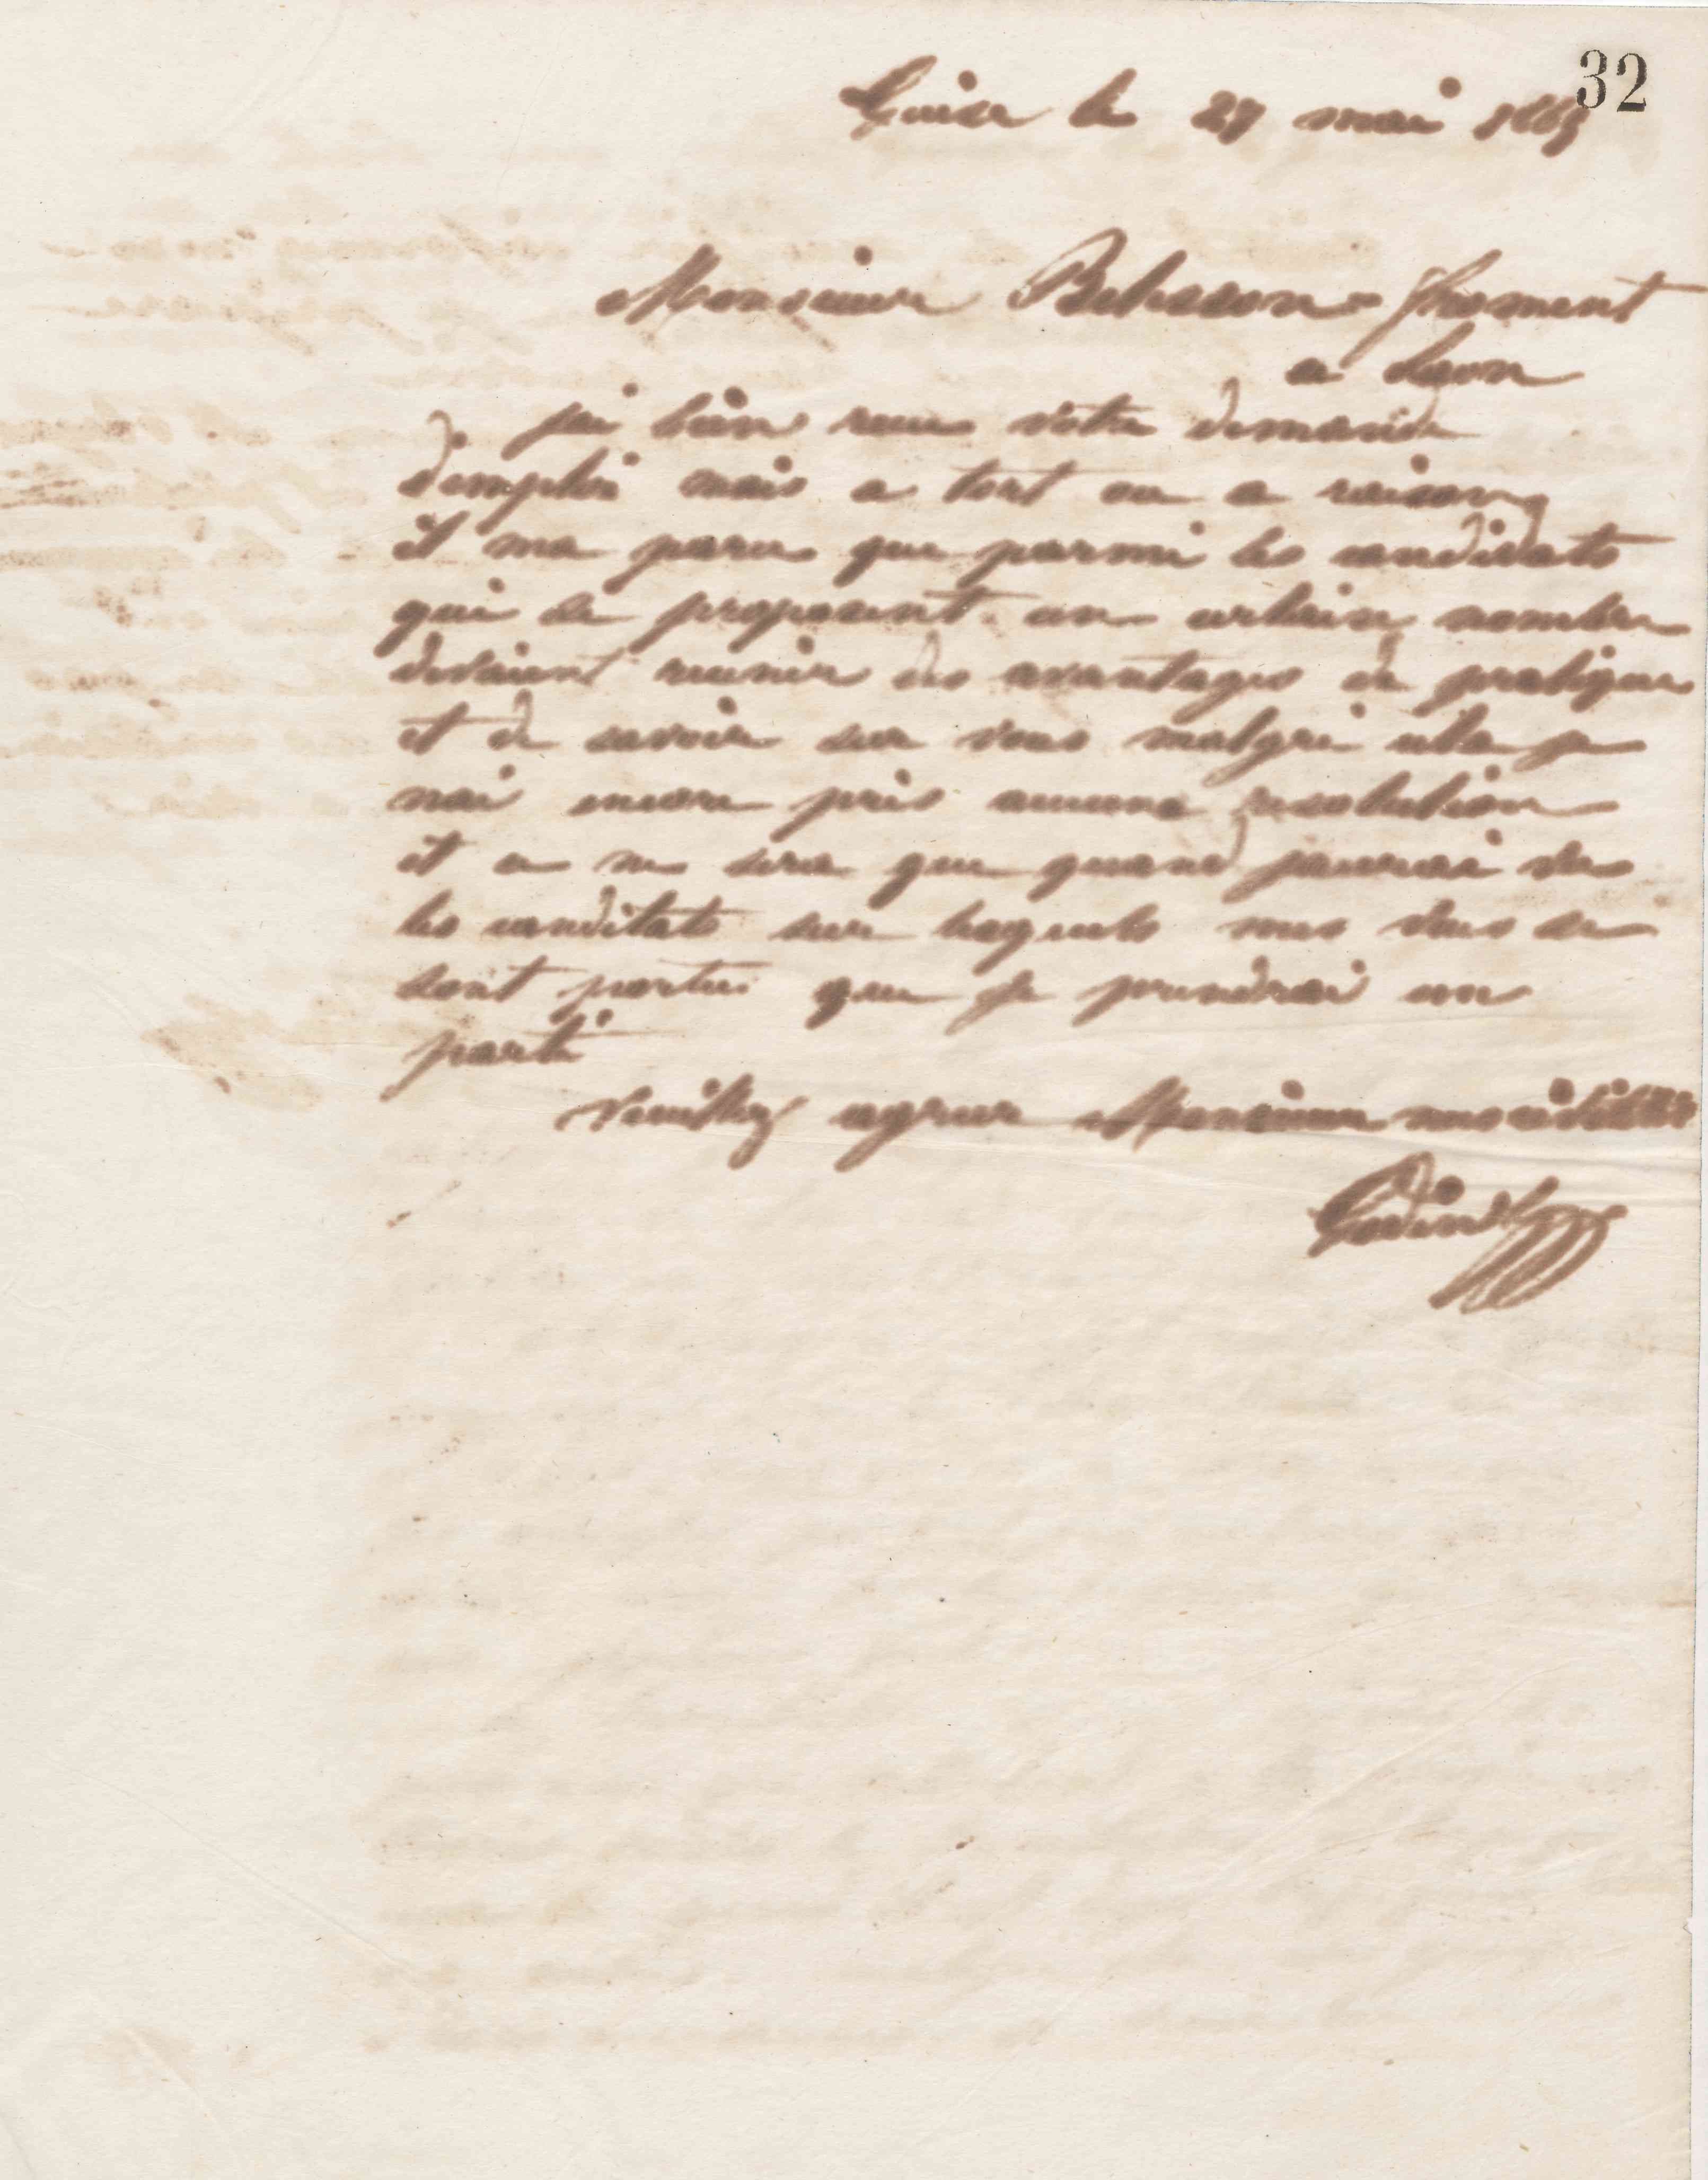 32
Guise le 27 mai 1865
Monsieur froment
a Laon
jai bien recu votre demande
demploi mais a tort ou a raison
il ma paru que parmi les candidats
qui se proposent un certain nombre
devaient reunir des avantages de pratique
et de savoir sur vous malgré cela je
nai encore pris aucune resolution
et ce ne sera que quand jaurai vu
les canditats sur lesquels mes vues se
sont portés que je prendrai un
parti
Veuillez agreer Monsieur mes civilités
Godin